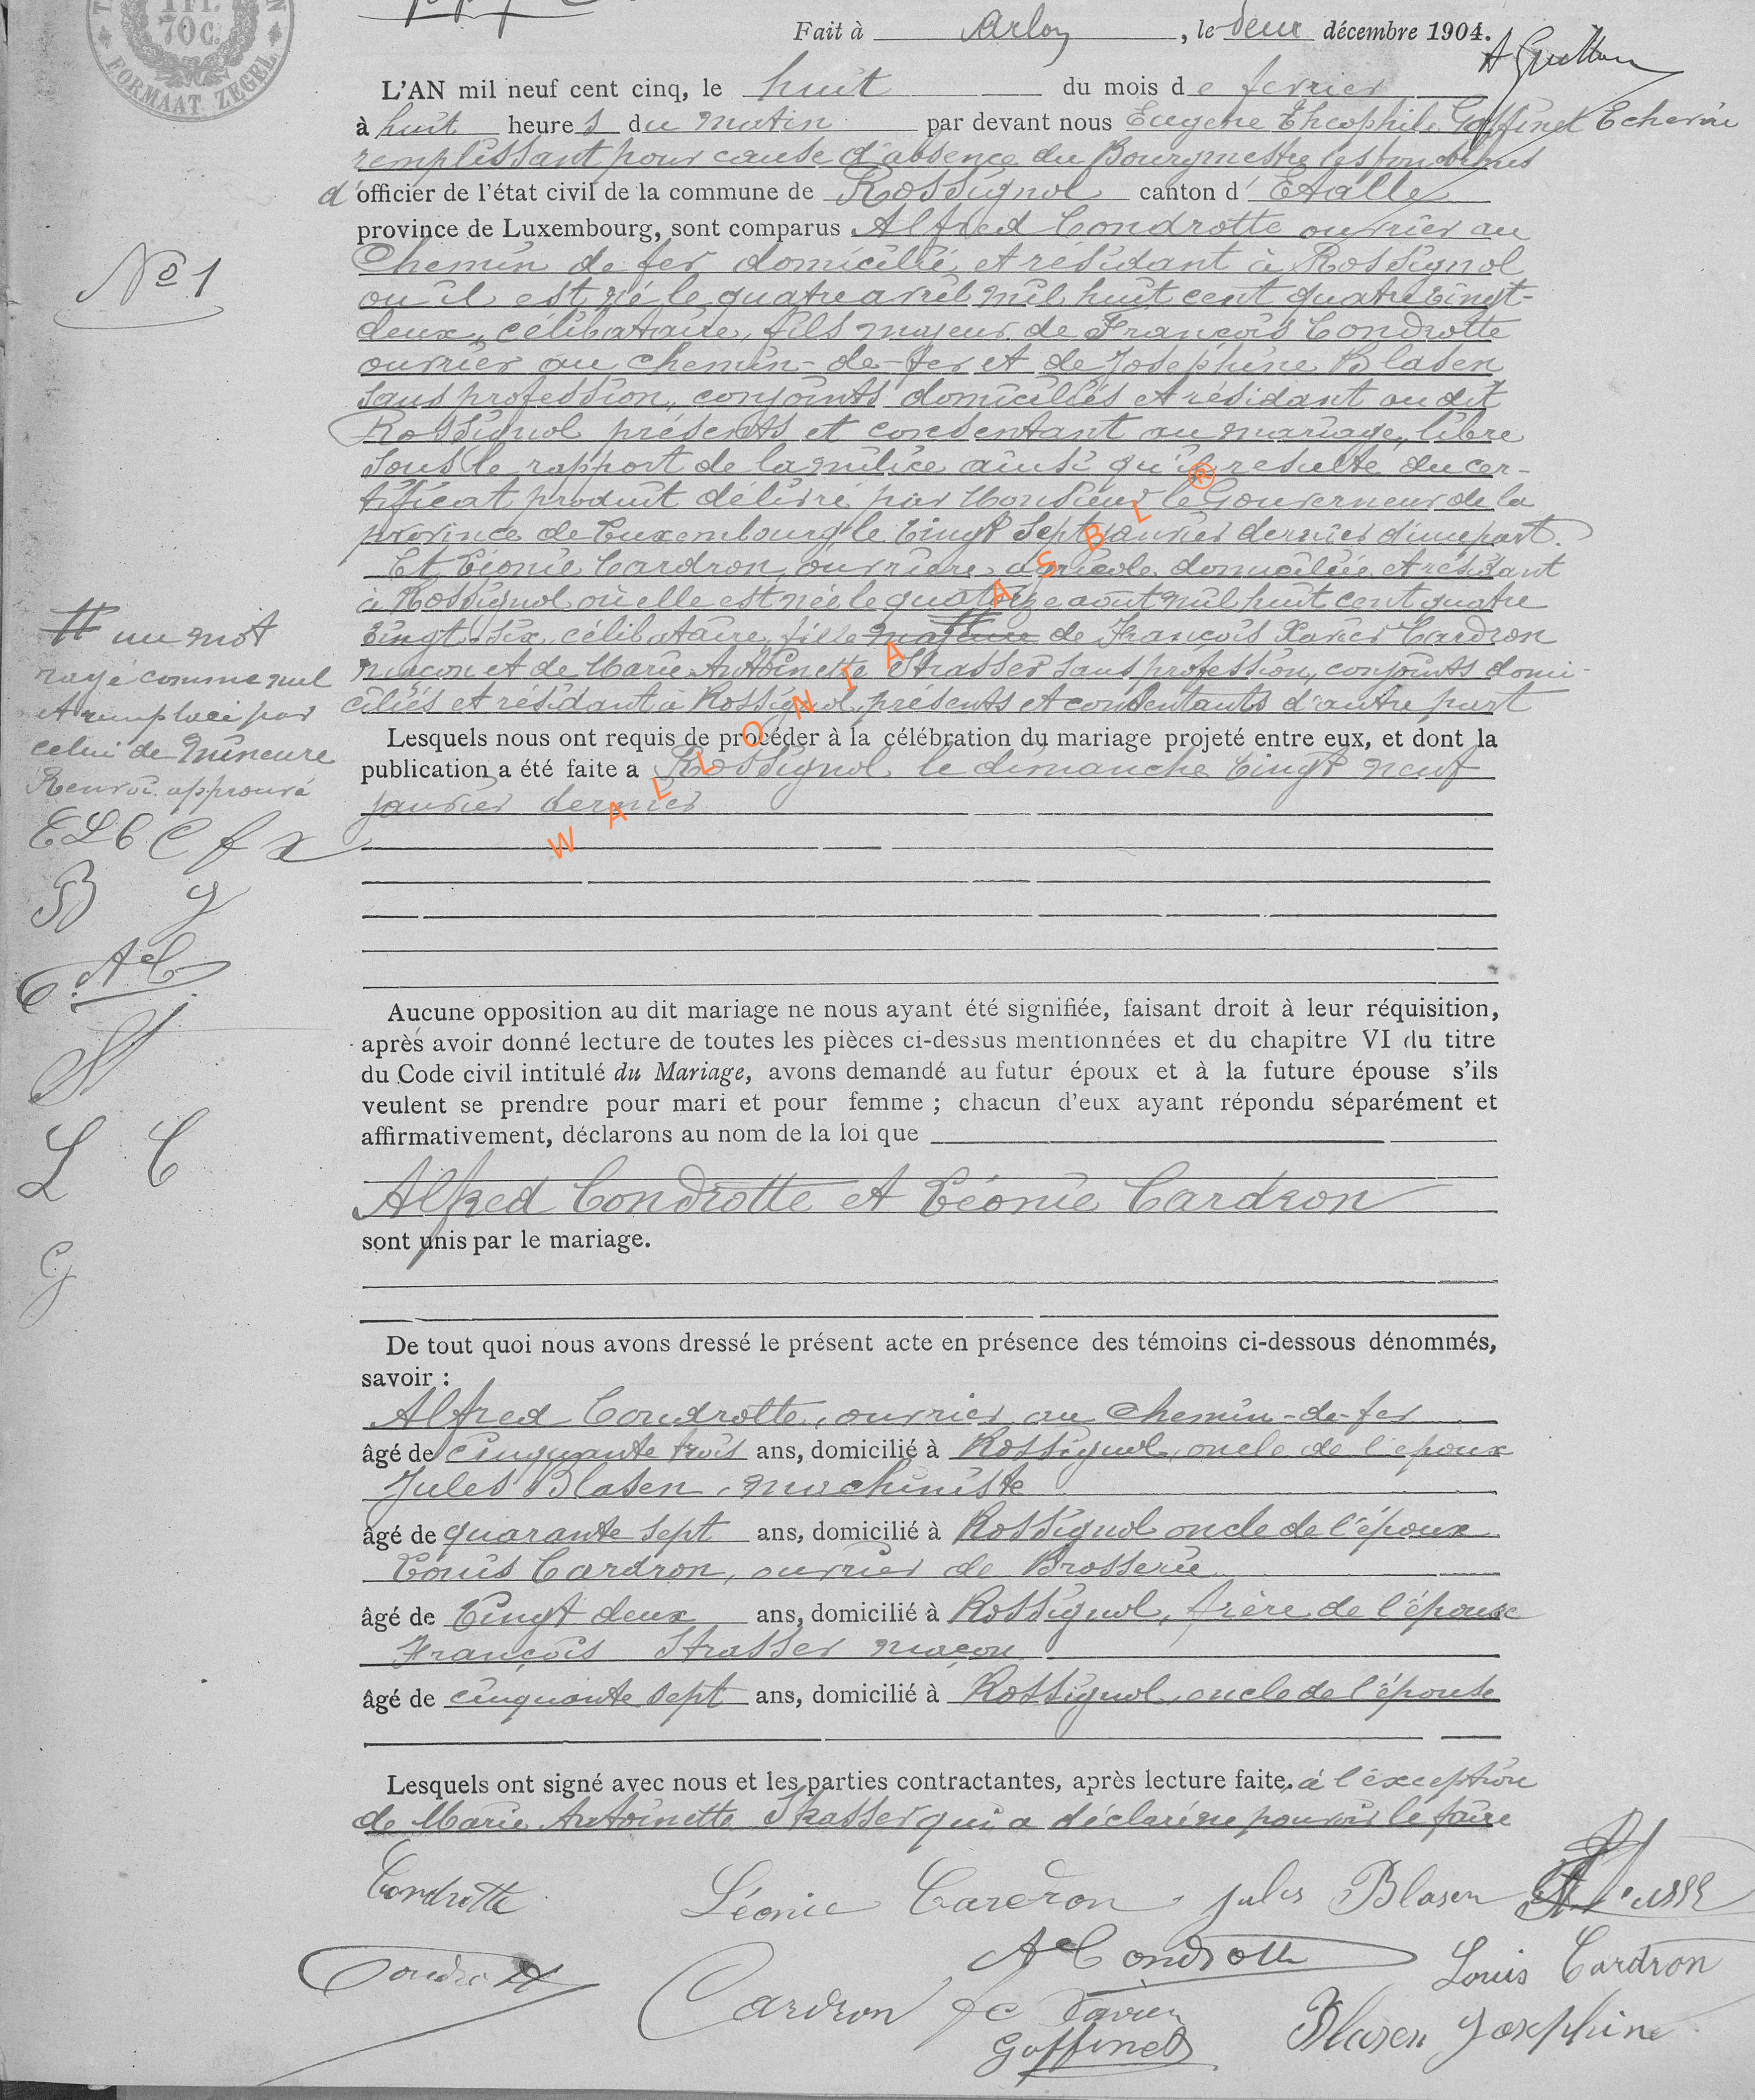 1 FR.
70 C.
FORMAAT ZEGEL
Fait à Arlon, le deux décembre 1904.
L'AN mil neuf cent cinq, le huit du mois de fevrier
à huit heures du matin par devant nous Eugene Théophile Goffinet Echevin
remplissant pour cause d'absence du Bourgmestre les fonctions
d'officier de l'état civil de la commune de Rossignol canton d'Etalle
province de Luxembourg, sont comparus Alfred Condrotte ouvrier au
N° 1
Chemin de fer domicilié et résidant à Rossignol
ou il est né le quatre avril mil huit cent quatre vingt-
deux, célibataire, fils majeur de François Condrotte
ouvrier au chemin-de-fer et de Joséphine Blasen
sans profession, conjoints domiciliés et résidant au dit
Rossignol présents et consentant au mariage, libre
sous le rapport de la milice ainsi qu'il resulte du cer-
tificat produit délivré par Monsieur le Gouverneur de la
province de Luxembourg le vingt sept janvier dernier d'une part.
Et Léonie Cardron, ouvrière agricole domiciliée et résidant
à Rossignol où elle est née le quatorze août mil huit cent quatre
vingt-six, célibataire, fille majeure # de François Xavier Cardron
maçon et de Marie Antoinette Strasser sans profession, conjoints domi-
ciliés et résidant à Rossignol, présents et consentants d'autre part
# un mot
rayé comme nul
et remplacé par
celui de mineure
Renvoi approuvé
ELC C f x
B J
A C
St
L C
G
Lesquels nous ont requis de procéder à la célébration du mariage projeté entre eux, et dont la
publication a été faite a Rossignol le dimanche vingt neuf
janvier dernier
WALLONIA ASBL ®
Aucune opposition au dit mariage ne nous ayant été signifiée, faisant droit à leur réquisition,
après avoir donné lecture de toutes les pièces ci-dessus mentionnées et du chapitre VI du titre
du Code civil intitulé du Mariage, avons demandé au futur époux et à la future épouse s'ils
veulent se prendre pour mari et pour femme ; chacun d'eux ayant répondu séparément et
affirmativement, déclarons au nom de la loi que
Alfred Condrotte et Léonie Cardron
sont unis par le mariage.
De tout quoi nous avons dressé le présent acte en présence des témoins ci-dessous dénommés,
savoir :
Alfred Condrotte, ouvrier au chemin-de-fer
âgé de cinquante trois ans, domicilié à Rossignol, oncle de l'epoux
Jules Blasen, machiniste
âgé de quarante sept ans, domicilié à Rossignol oncle de l'époux
Louis Cardron, ouvrier de Brosserie
âgé de Vingt deux ans, domicilié à Rossignol, frère de l'épouse
François Strasser maçon
âgé de cinquante sept ans, domicilié à Rossignol, oncle de l'épouse
Lesquels ont signé avec nous et les parties contractantes, après lecture faite. à l'exception
de Marie Antoinette Strasser qui a déclaré ne pouvoir le faire
Condrotte Léonie Cardron Jules Blasen
Condrotte A Condrotte Louis Cardron
Cardron fc Xavier Blasen Josephine
Goffinet